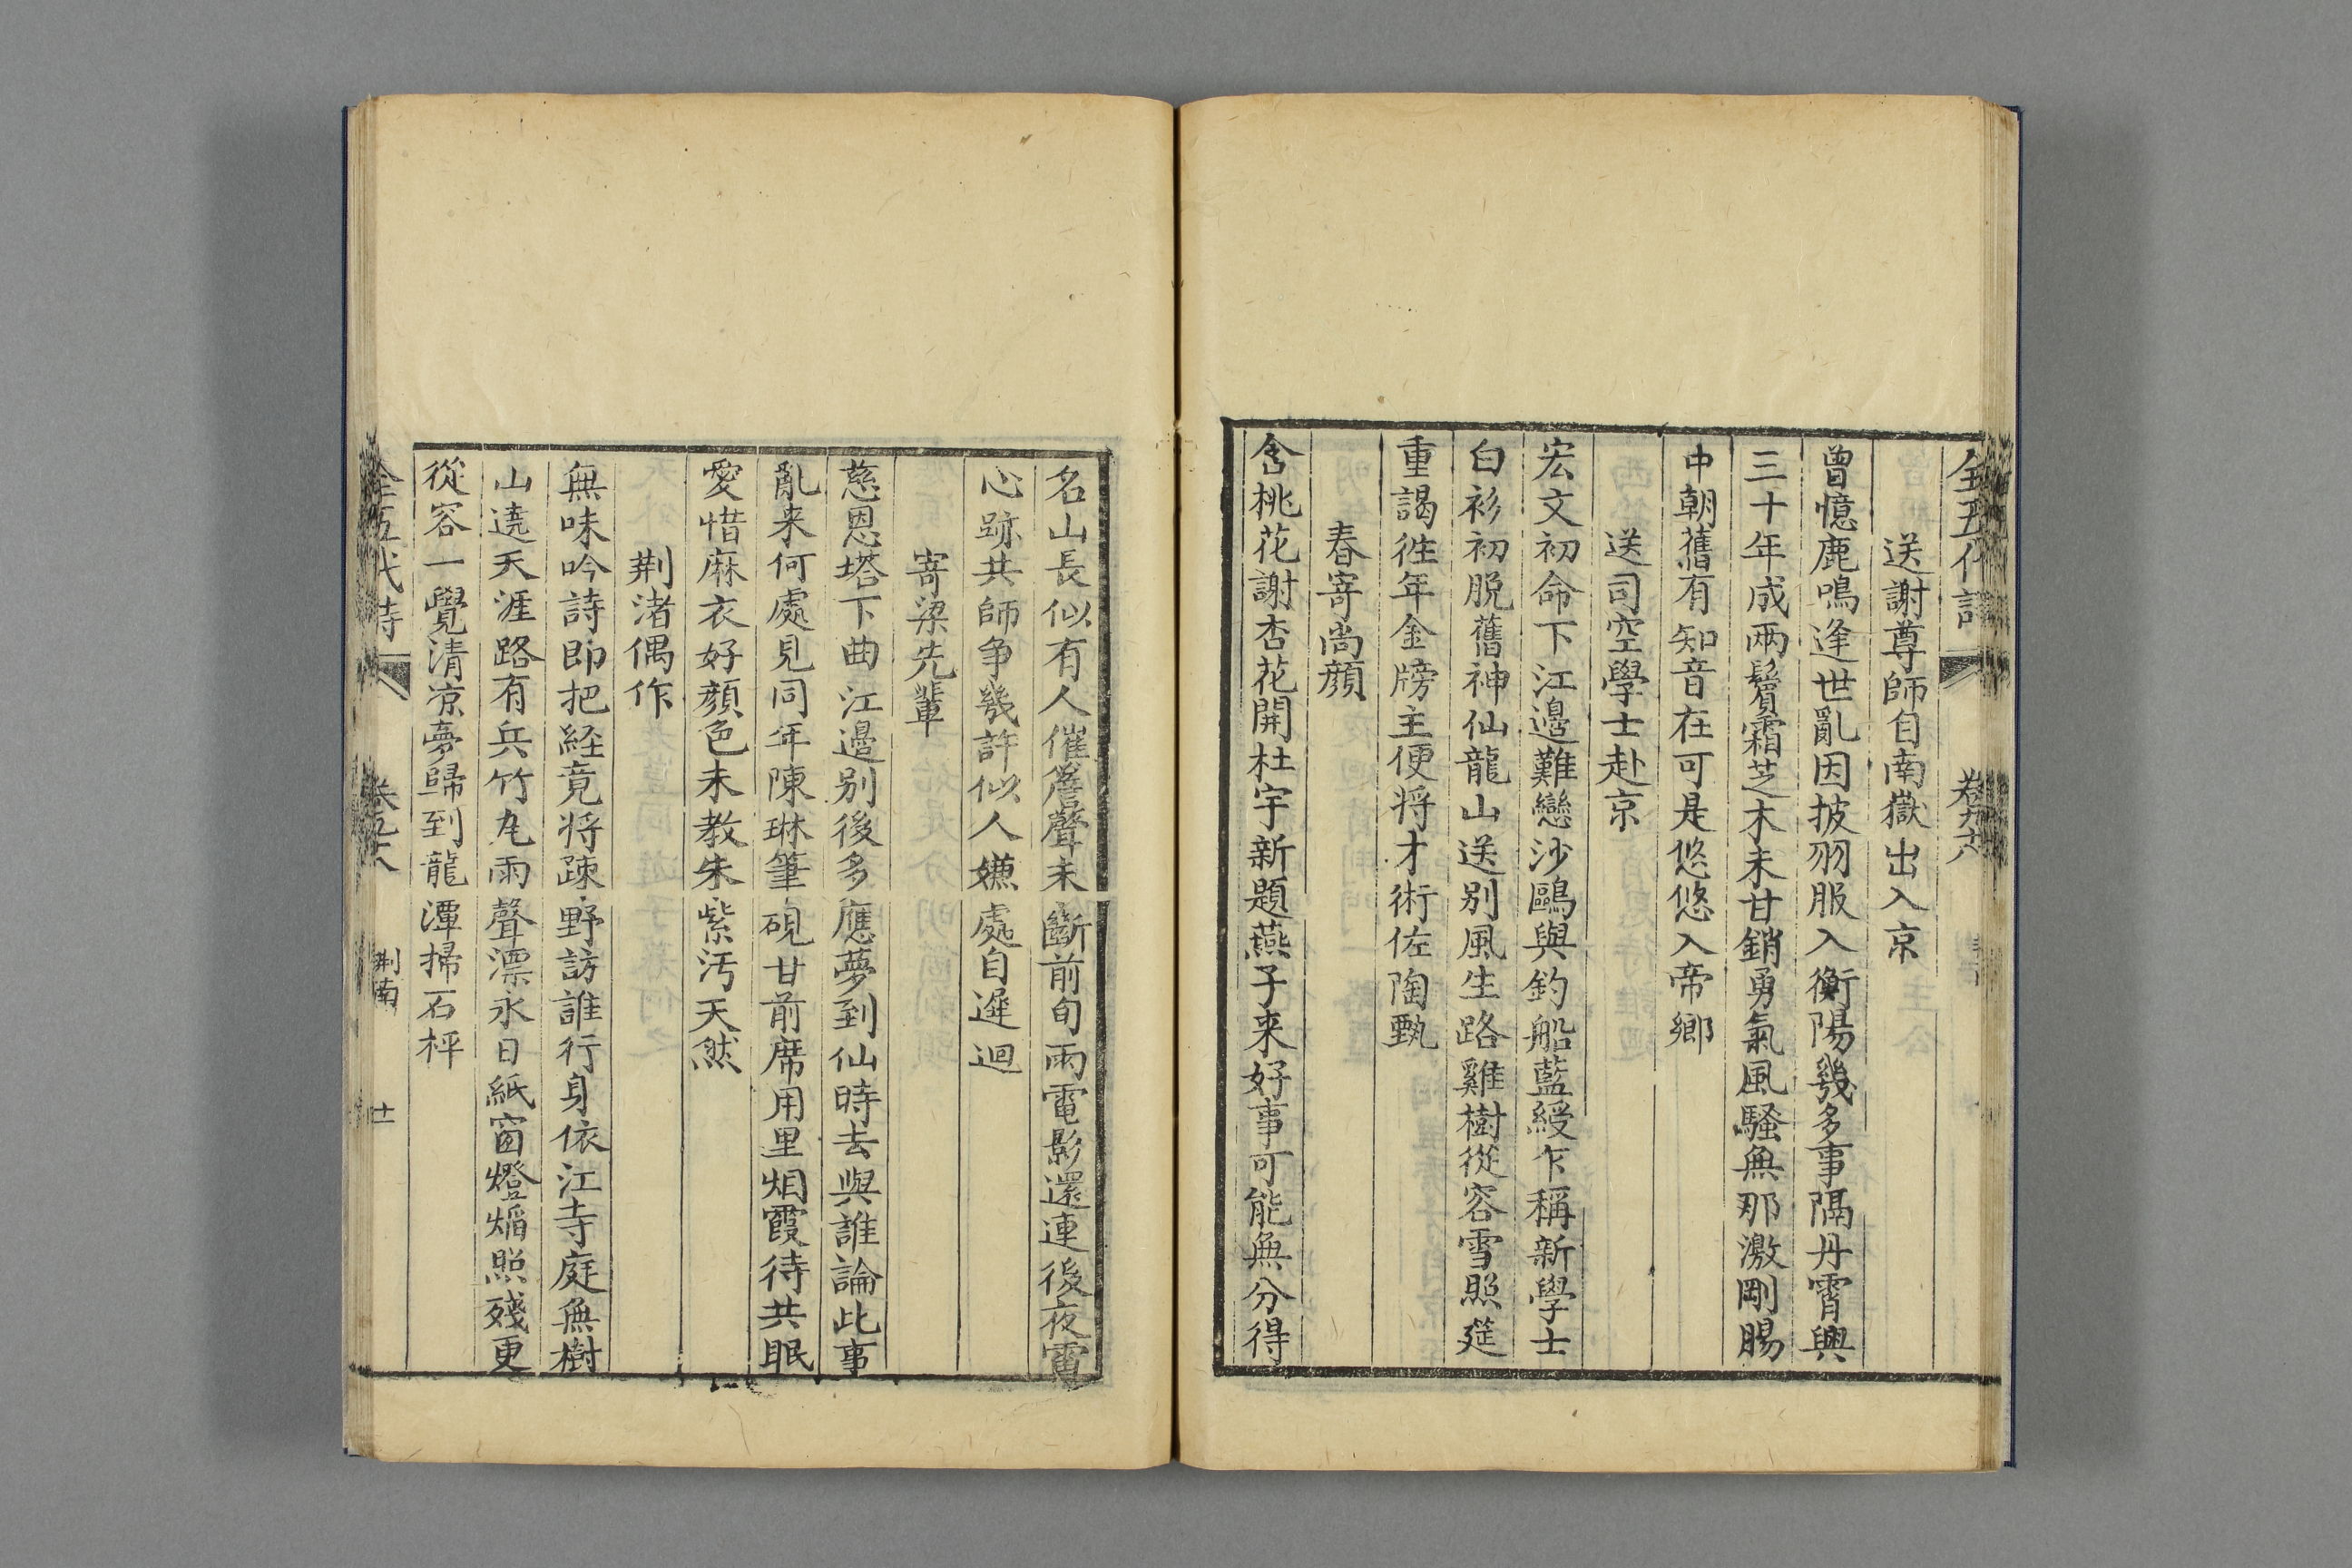 全五代詩
卷九十六
送謝尊師自南嶽出入京
曾憶鹿鳴逢世亂因披羽服入衡陽幾多事隔丹霄興
三十年成兩鬢霜芝朮未甘銷勇氣風騷無那激剛腸
中朝舊有知音在可是悠悠入帝鄉
送司空學士赴京
宏文初命下江邊難戀沙鷗與釣船藍綬乍稱新學士
白衫初脫舊神仙龍山送别風生路雞樹從容雪照筵
重謁徃年金牓主便将才術佐陶甄
春寄尚顏
含桃花謝杏花開杜宇新題燕子来好事可能無分得
名山長似有人催簷聲未斷前旬雨電影還連後夜雷
心跡共師争幾許似人嫌處自遲迴
寄梁先輩
慈恩塔下曲江邊别後多應夢到仙時去與誰論此事
亂来何處見同年陳琳筆硯甘前席用里烟霞待共眠
愛惜麻衣好顏色未教朱紫汚天然
荆渚偶作
無味吟詩即把経竟将疎野訪誰行身依江寺庭無樹
山遶天涯路有兵竹瓦雨聲漂永日紙窗燈焰照殘更
從容一覺清凉夢歸到龍潭掃石枰
全五代詩
荆南
十一